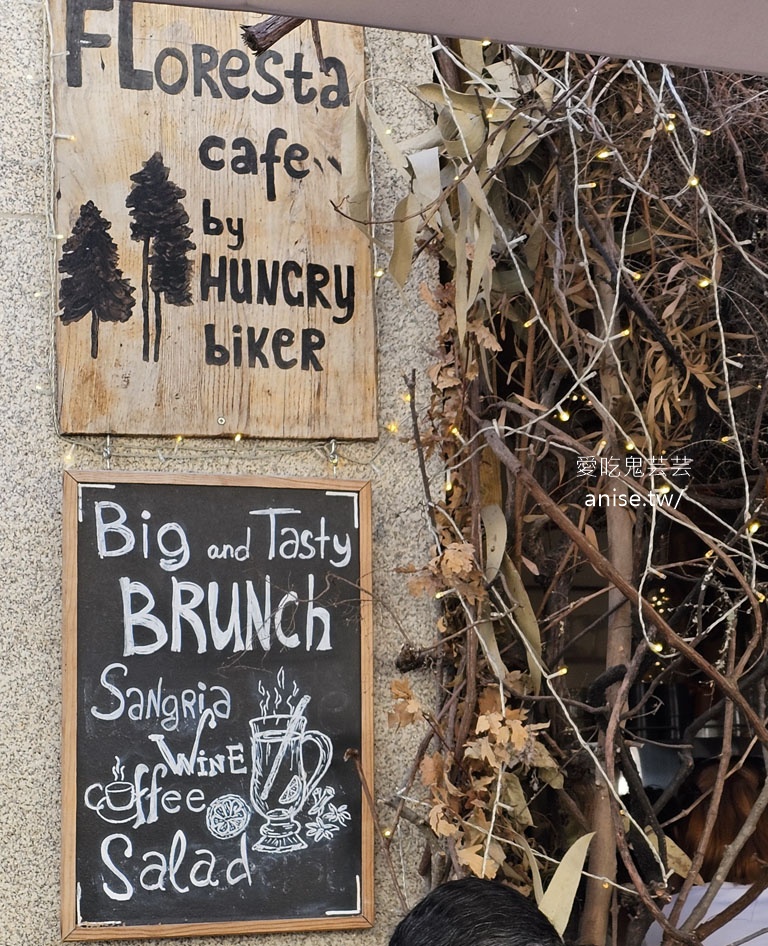 FLoresta
cafe
by
HUNGRY
biKER
Big and Tasty
BRUNCh
SaNGRia
WiNE
coffee
Salad
愛吃鬼芸芸
anise.tw/